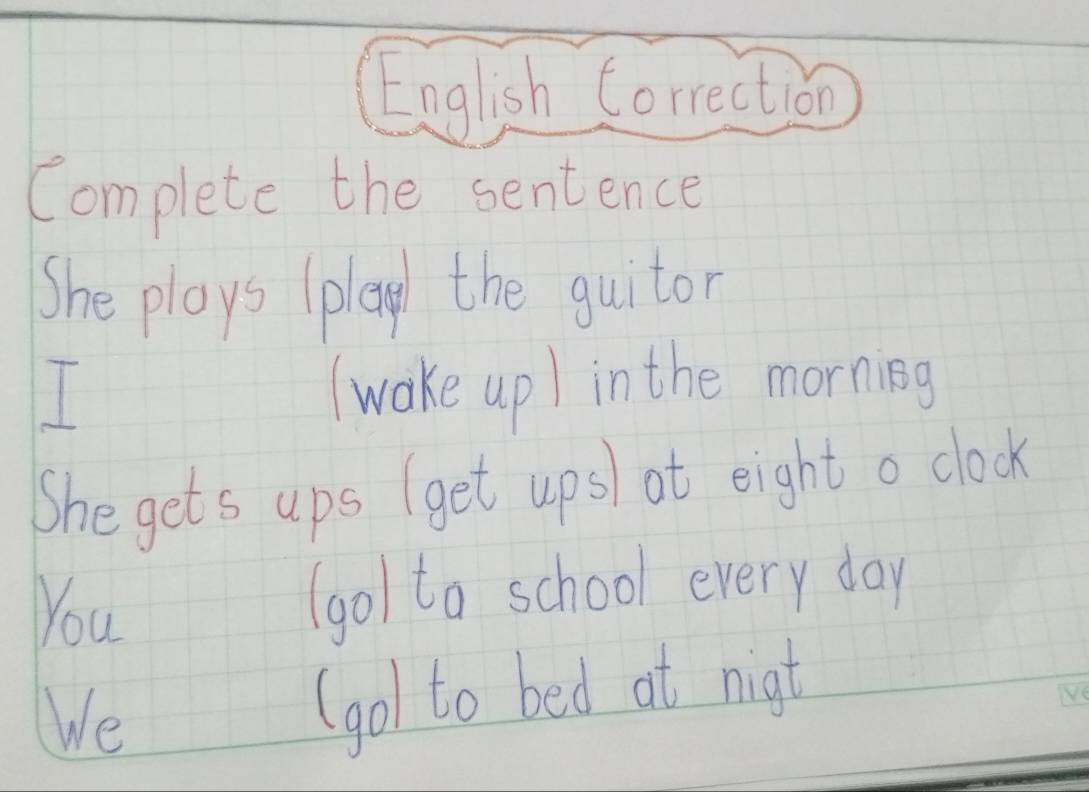 English Correction
Complete the sentence
She plays (play) the guitor
I (wake up) in the morning
She gets ups (get ups) at eight o clock
You (go) to school every day
We (go) to bed at nigt